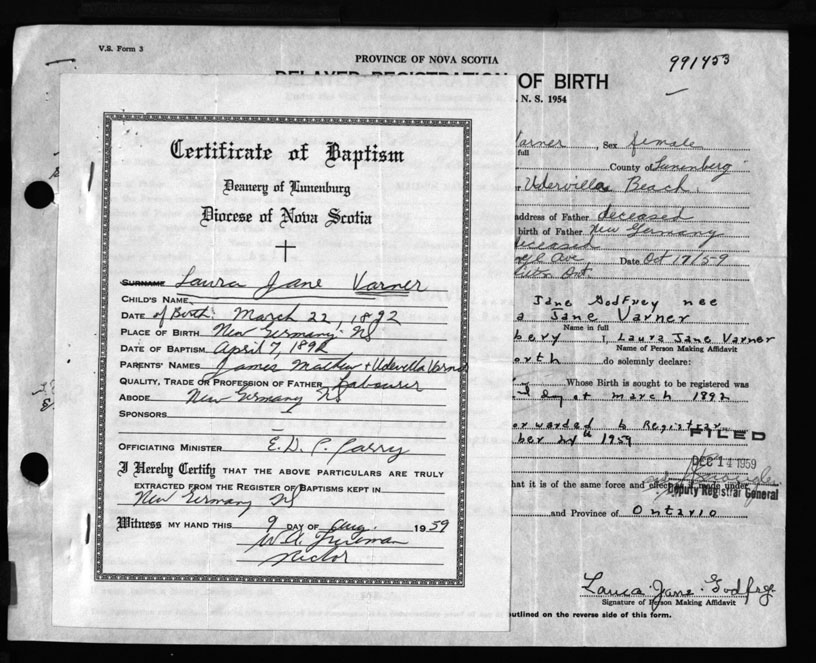 V.S. Form 3
PROVINCE OF NOVA SCOTIA
991453
DELAYED REGISTRATION OF BIRTH
N. S. 1954
Certificate of Baptism
Deanery of Lunenburg
Diocese of Nova Scotia
SURNAME Laura Jane Varner
CHILD'S NAME
DATE of Birth: March 22, 1892
PLACE OF BIRTH New Germany NS
DATE OF BAPTISM April 7, 1892
PARENTS' NAMES James Mathew & Udevilla Varner
QUALITY, TRADE OR PROFESSION OF FATHER Labourer
ABODE New Germany NS
SPONSORS
OFFICIATING MINISTER E. D. P. Parry
I Hereby Certify THAT THE ABOVE PARTICULARS ARE TRULY
EXTRACTED FROM THE REGISTER OF BAPTISMS KEPT IN
New Germany NS
Witness MY HAND THIS 9 DAY OF Aug. 1959
Rector
Varner, Sex female
full
County of Lunenberg
Beach
address of Father deceased
birth of Father New Germany
deceased
Ave, Date Oct 19/59
Ont.
Jane Godfrey nee
a Jane Varner
Name in full
bery I, Laura Jane Varner
Name of Person Making Affidavit
orth do solemnly declare:
Whose Birth is sought to be registered was
day of March 1892
orwarded to Registrar
ber 24th 1959
FILED
DEC 14 1959
hat it is of the same force and effect as if made under
Deputy Registrar General
and Province of Ontario
Laura Jane Godfrey
Signature of Person Making Affidavit
outlined on the reverse side of this form.